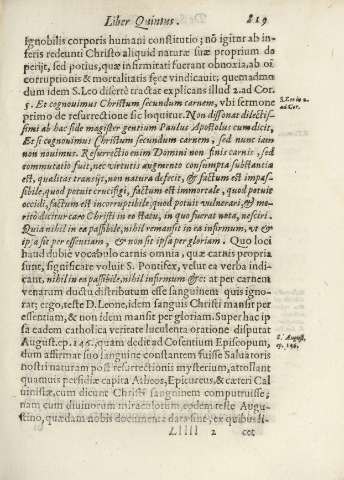 Liber Quintus. 819
ignobilis corporis humani constitutio; nō igitur ab in-
feris redeunti Christo aliquid naturæ suæ proprium de
perijt, sed potius, quæ infirmitati fuerant obnoxia, ab oī
corruptionis & mortalitatis fęce vindicauit; quemadmo
dum idem S. Leo disertè tractat explicans illud 2. ad Cor.
5. Et cognouimus Christum secundum carnem, vbi sermone
S. Leo in 2.
ad Cor.
primo de resurrectione sic loquitur. Non dissonat dilectis-
simi ab hac fide magister gentium Paulus Apostolus cum dicit,
Et si cognouimus Christum secundum carnem, sed nunc iam
non nouimus. Resurrectio enim Domini non finis carnis, sed
commutatio fuit, nec virtutis augmento consumpta substantia
est, qualitas transijt, non natura defecit, & factum est impas-
sibile, quod potuit crucifigi, factum est immortale, quod potuit
occidi, factum est incorruptibile, quod potuit vulnerari, & me-
ritò dicitur caro Christi in eo statu, in quo fuerat nota, nesciri.
Quia nihil in ea passibile, nihil remansit in ea infirmum, vt &
ipsa sit per essentiam, & non sit ipsa per gloriam. Quo loci
haud dubiè vocabulo carnis omnia, quæ carnis propria
sunt, significare voluit S. Pontifex, velut ea verba indi-
cant. nihil in ea passibile, nihil infirmum &c: at per carnem
venarum ductu distributum esse sanguinem quis igno-
rat; ergo, teste D. Leone, idem sanguis Christi mansit per
essentiam, & non idem mansit per gloriam. Super hac ip
sa eadem catholica veritate luculenta oratione disputat
August. ep. 146. quam dedit ad Cosentium Episcopum,
S. August.
ep. 146.
dum affirmat suo sanguine constantem fuisse Saluatoris
nostri naturam post resurrectionis mysterium, attollant
quamuis persidiæ capita Atheos, Epicureus, & cæteri Cal
uinistæ, cum dicunt Christi sanguinem computruisse;
nam cum diuinorum miraculorum eodem teste Augu-
stino, quædam nobis documenta data sint, ex quibus li-
LIIII 2 cet